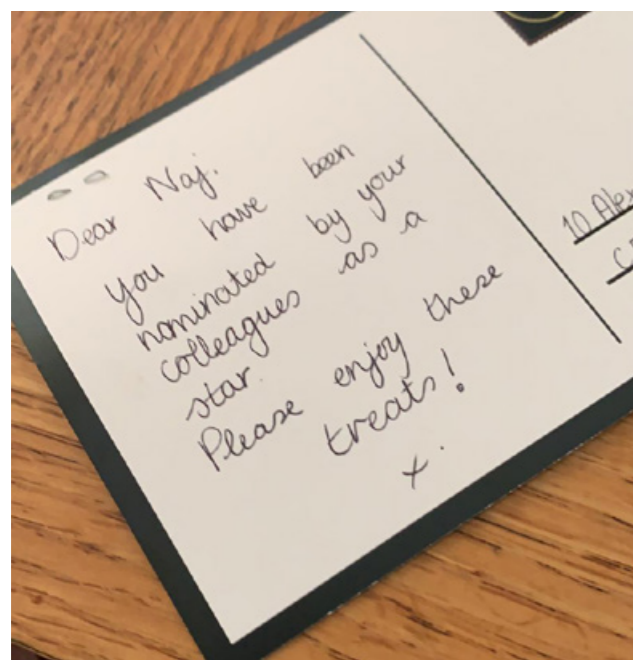 Dear Naj.
you have been
nominated by your
colleagues as a
star.
Please enjoy these
treats!
x.
10